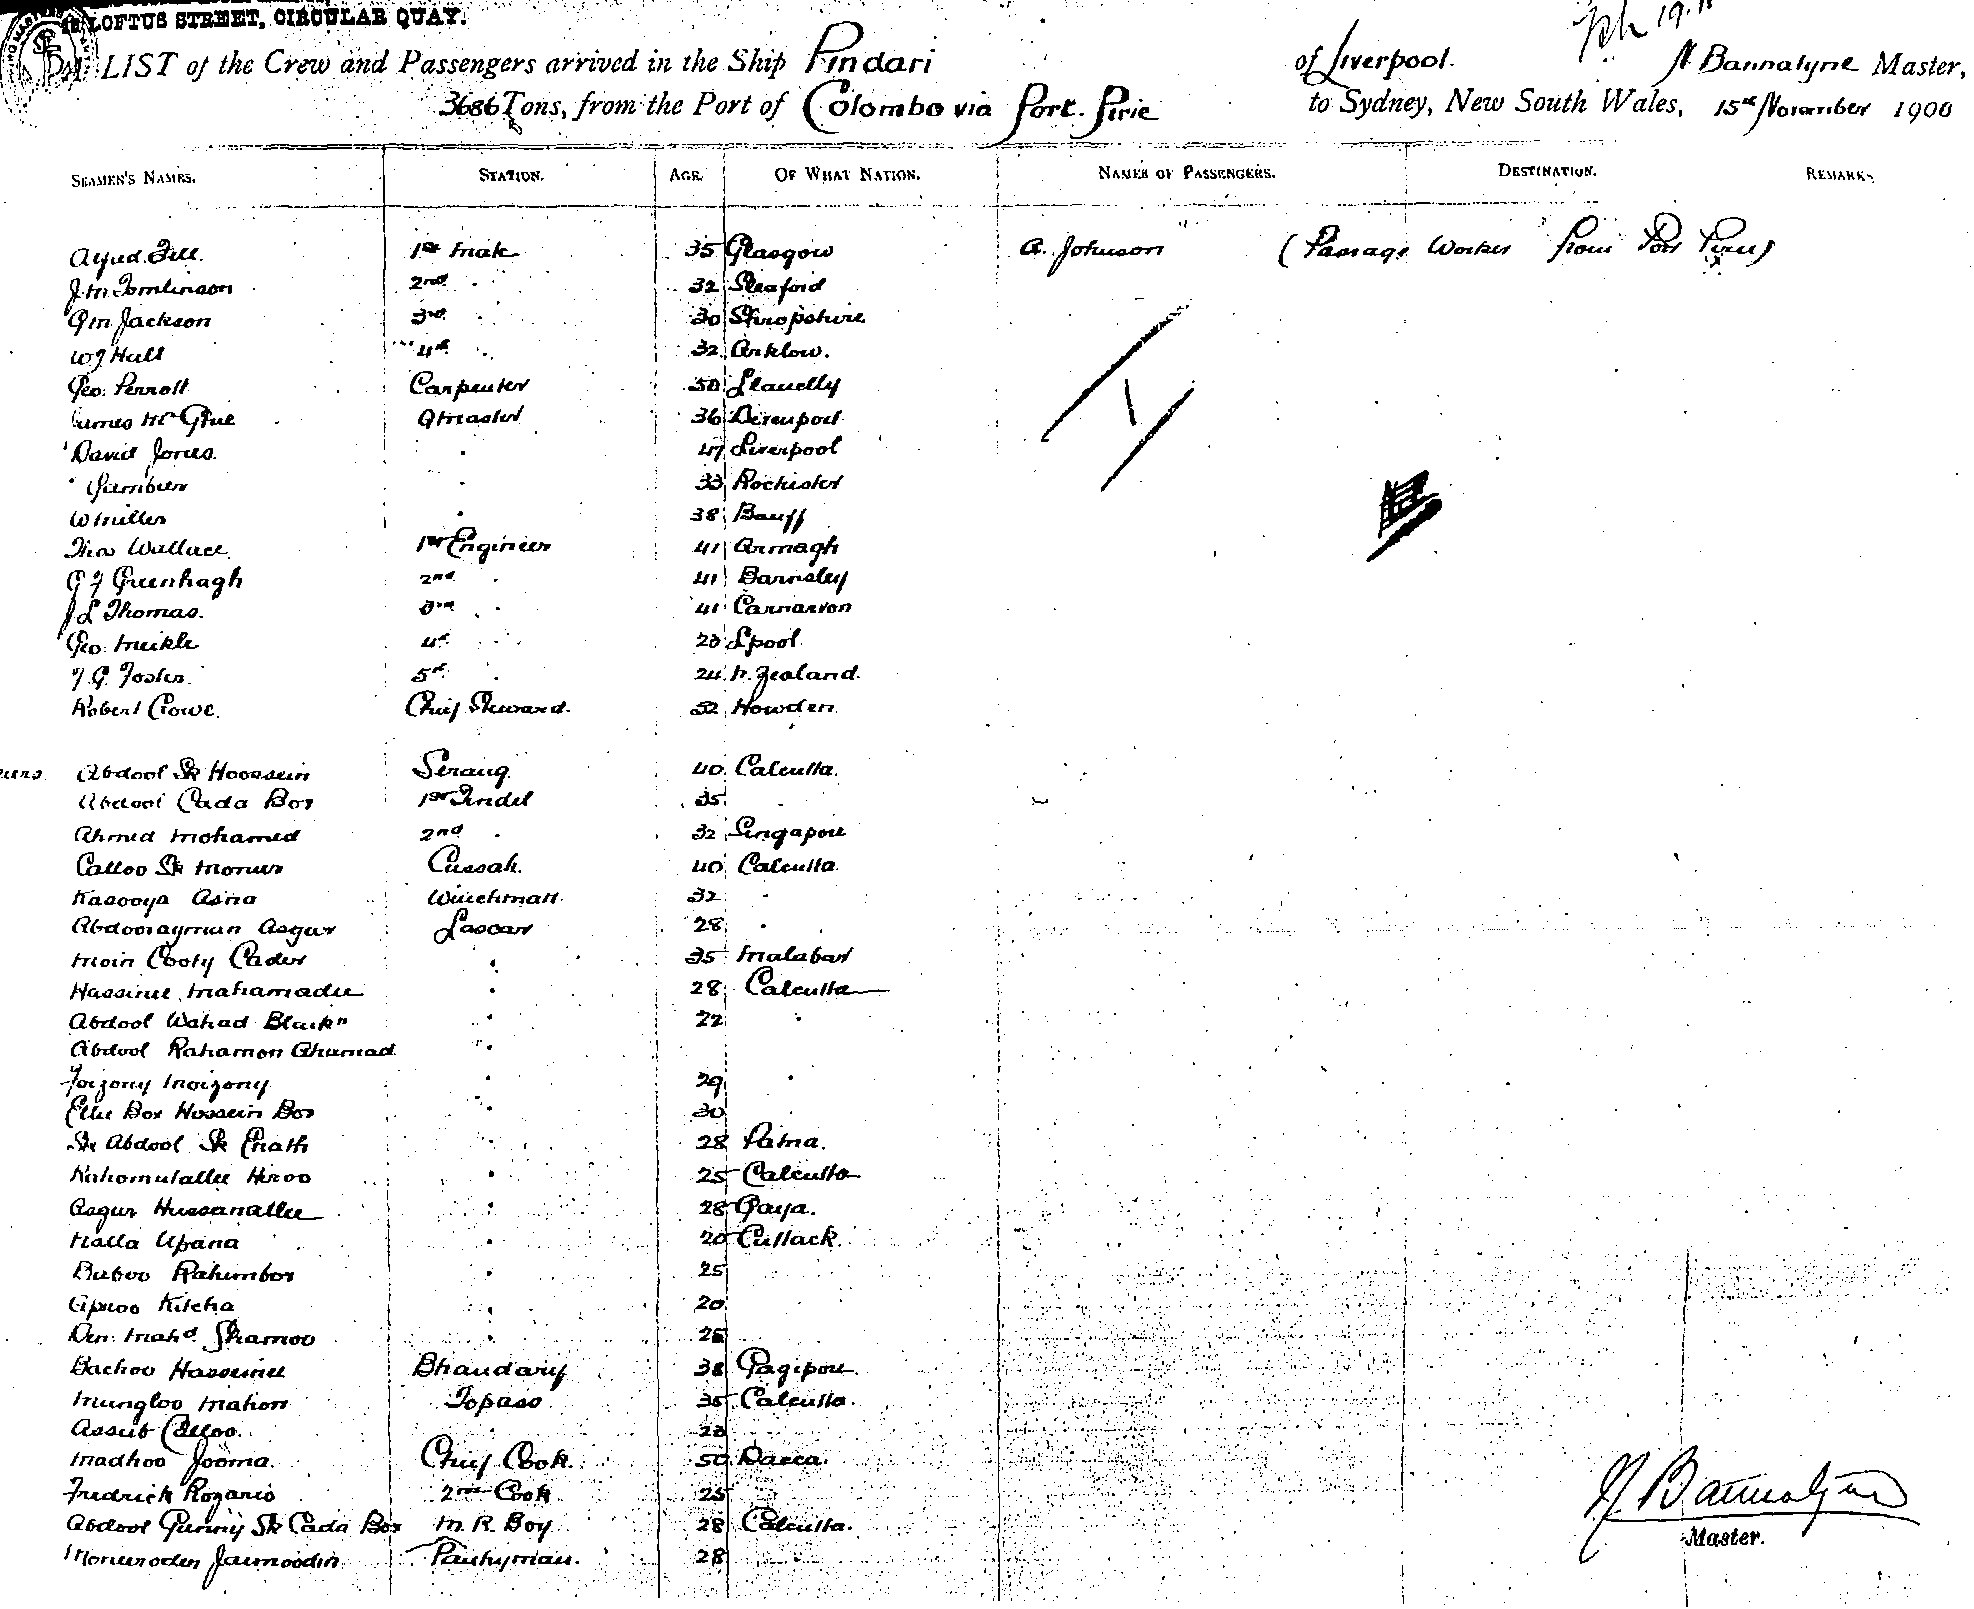 LOFTUS STREET, CIRCULAR QUAY.
LIST of the Crew and Passengers arrived in the Ship Pindari of Liverpool. Bannatyne Master,
3686 Tons, from the Port of Colombo via Port. Pirie to Sydney, New South Wales, 15th November 1900
SEAMEN'S NAMES. STATION. AGE. OF WHAT NATION. NAMES OF PASSENGERS. DESTINATION. REMARKS
Alfred 1st Mate 35 Glasgow A. Johnson (Passage Worker from Port Pirie)
J M Tomlinson 2nd " 32 Sleaford
G M Jackson 3rd " 30 Shropshire
W J Hall 4th " 32 Arklow.
Geo. Perrott Carpenter 50 Llanelly
James McGlue Qmaster 36 Devenport
David Jones. " 47 Liverpool
" 33 Rochister
W Miller " 38 Banff
Thos Wallace 1st Engineer 41 Armagh
G F Greenhagh 2nd " 41 Barnsley
J L Thomas. 3rd " 41 Carnarvon
Geo. Meikle 4th " Lpool
F. G. Foster. 5th " 24 N. Zealand.
Robert Crowe. Chief Steward. 52 Howden
Abdool Sk Hoossein Serang. 40 Calcutta.
Abdool Cada Box 1st Tindel 35 "
Ahmed Mohamed 2nd " 32 Singapore
Calloo Sk Cussab. 40 Calcutta
Kasooya Asna Winchman. 32 "
Asgur Lascar 28 "
Moin Cooty Cader " 35 Malabar
Hassinee Mahamadee " 28 Calcutta
Abdool Wahad " 22 "
Abdool Rahamon Ahumad "
Foizony Moizony " 29 "
Box Hossein Box " 30
Sk Abdool Sk Enath " 28 Patna.
Rahomutallee Heroo " 25 Calcutta
Asgur Hussanallee " 28 Gaya.
Malla Upana " 20 Cuttack.
Buboo Rahimbox " 25
Kitcha " 20
Mahd Shamoo " 25
Bachoo Hasseinee Bhandary 38
Mungloo Mahon Topass 35 Calcutta.
Assub Calloo.
Madhoo Jooma. Chief Cook. 50 Dacca.
Fredrick Rozario 2nd Cook 25
Abdool Gunny Sk Cada Box M. R. Boy 28 Calcutta.
Jaimoodin Pantryman. 28
Bannatyne
Master.